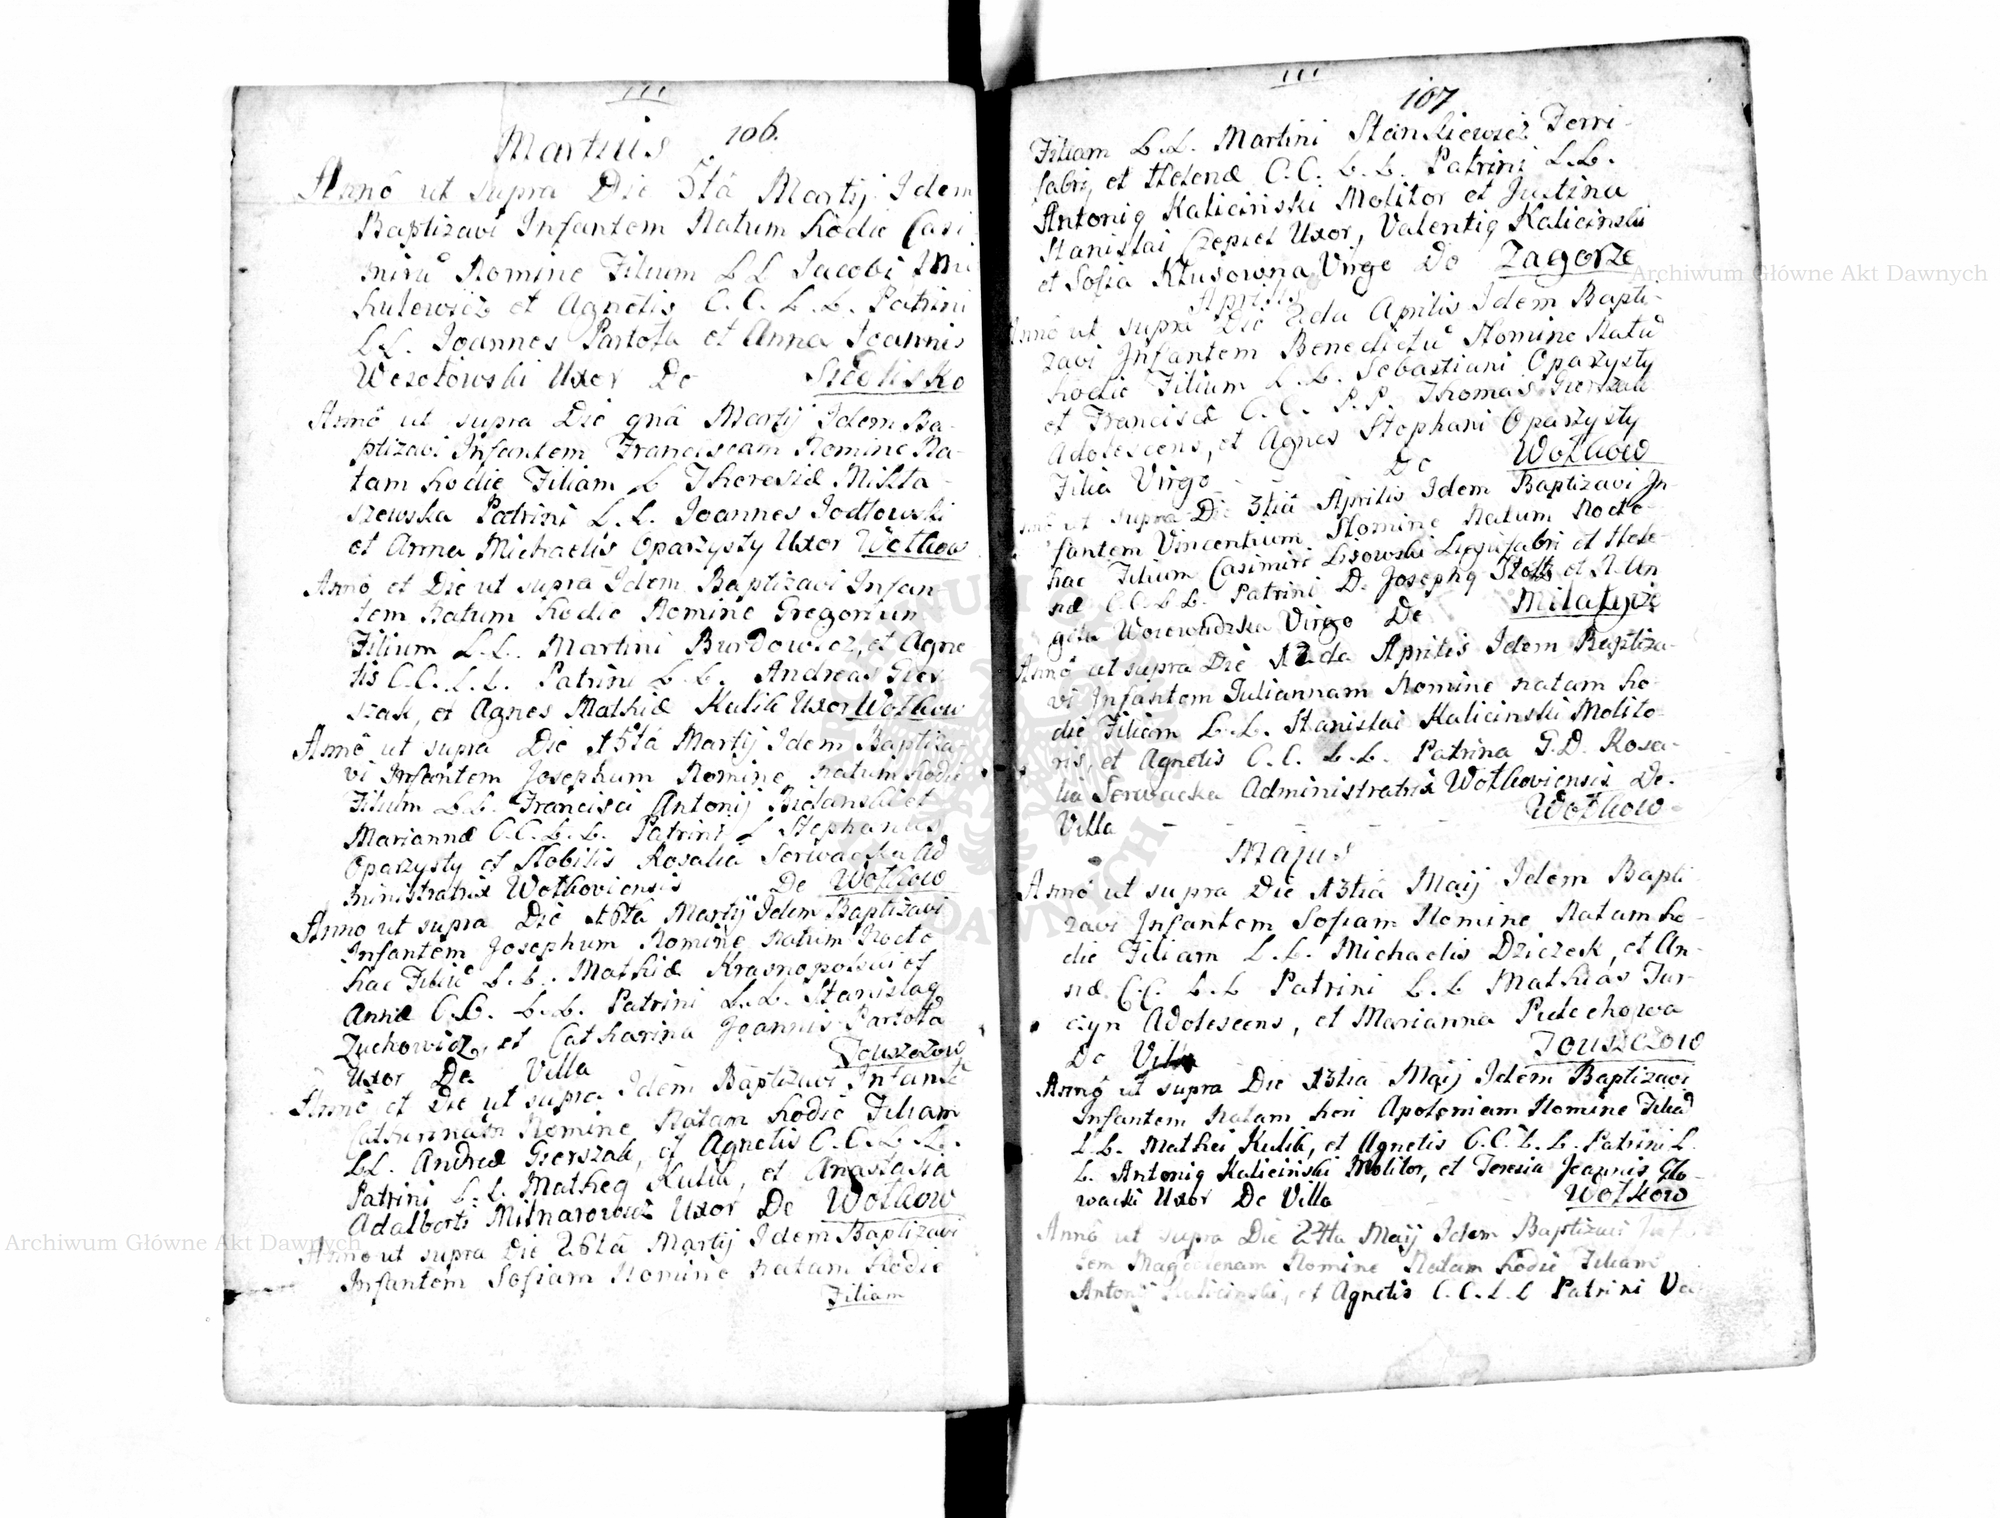 III
106.
Martius
Annô ut supra Die 5tâ Martij Idem
Baptizavi Infantem Natum hodie Casi
mirũ Nomine Filium LL Jacobi
kulewicz et Agnetis C.C. L.L. Patrini
LL. Joannes Partota et Anna Joannis
Wesołowski Uxor De Siedlisko
Annô ut supra Die 9nâ Martij Idem Ba-
ptizavi Infantem Franciscam Nomine Na-
tam hodie Filiam L Theresiæ Mikta-
szewska Patrini L.L. Joannes Jodłowski
et Anna Michaelis Oparzysty Uxor Wołkow
Annô et Die ut supra Idem Baptizavi Infan-
tem natum hodie Nomine Gregorium
Filium L.L. Martini Burdowicz, et Agne
tis C.C. L.L. Patrini L.L. Andreas Gier
szak, et Agnes Mathiæ Kulik Uxor Wołkow
Annô ut supra Die 15tâ Martij Idem Baptiza-
vi Infantem Josephum Nomine, natum hodie
Filium L.L. Francisci Antonij Bielanski et
Mariannæ C.C. L.L. Patrini L Stephanus
Oparzysty et Nobilis Rosalia Serwacka Ad
ministratrix Wołkoviensis De Wołkow
Anno ut supra Die 16tâ Martij Idem Baptizavi
Infantem Josephum Nomine natum Nocte
hac Filiũ L.L. Mathiæ Krasnopolski et
Annæ C.C. L.L. Patrini L.L. Stanislaq
Zuchowicz, et Catharina Joannis Partota
Uxor De Villa Touszczow
Annô et Die ut supra Idem Baptizavi Infantẽ
Catharinam Nomine Natam hodie Filiam
LL. Andreæ Gierszak, et Agnetis C.C. L.L.
Patrini L.L. Matheq Kulik, et Anastasia
Adalberti Mitnarowicz Uxor De Wołkow
Anno ut supra Die 26tâ Martij Idem Baptizavi
Infantem Sofiam Nomine natam hodie
Filiam
III
107
Filiam L.L. Martini Stankiewicz Ferri-
fabri, et Helenæ C.C. L.L. Patrini L.L.
Antoniq Kaliciński Molitor et Justina
Stanislai Czepiel Uxor, Valentiq Kaliciński
et Sofia Kłusowna Virgo De Zagorze
Aprilis
Annô ut supra Die 2da Aprilis Idem Bapti-
zavi Infantem Benedictũ Nomine Natũ
hodie Filium L.L. Sebastiani Oparzysty
et Franciscæ C.C. P.P. Thomas Gierszak
Adolescens, et Agnes Stephani Oparzysty
Filia Virgo De Wołkow
Annô ut supra Die 3tiâ Aprilis Idem Baptizavi In-
fantem Vincentium Nomine natum nocte
hac Filium Casimiri Lisowski Lignifabri et Hele-
næ C.C. L.L. Patrini D. Josephq et N. An
gela Woiewudzka Virgo De Milatyn
Annô ut supra Die 12da Aprilis Idem Baptiza-
vi Infantem Juliannam Nomine natam ho-
die Filiam L.L. Stanislai Kalicinski Molito-
ris, et Agnetis C.C. L.L. Patrina G.D. Rosa-
lia Serwacka Administratrix Wołkoviensis De
Villa - - - - - Wołkow
Majus
Annô ut supra Die 13tiâ Maij Idem Bapti
zavi Infantem Sofiam Nomine Natam ho-
die Filiam L.L. Michaelis Dziczek, et An-
næ C.C. L.L Patrini L.L Mathias Tur-
czyn Adolescens, et Marianna Pelechowa
De Villa Touszczow
Annô ut supra Die 13tia Maij Idem Baptizavi
Infantem Natam heri Apoloniam Nomine Filiã
L.L. Mathei Kulik, et Agnetis C.C. L.L. Patrini L.
L. Antoniq Kaliciński Molitor, et Teresia Joannis Gło-
wacki Uxor De Villa Wołkow
Annô ut supra Die 24ta Maij Idem Baptizavi Inf
tem Magdalenam Nomine Natam hodie Filiam
Antonij Kalicinski, et Agnetis C.C. L.L Patrini Va
Archiwum Główne Akt Dawnych
Archiwum Główne Akt Dawnych
ARCHIWUM GŁÓWNE AKT DAWNYCH